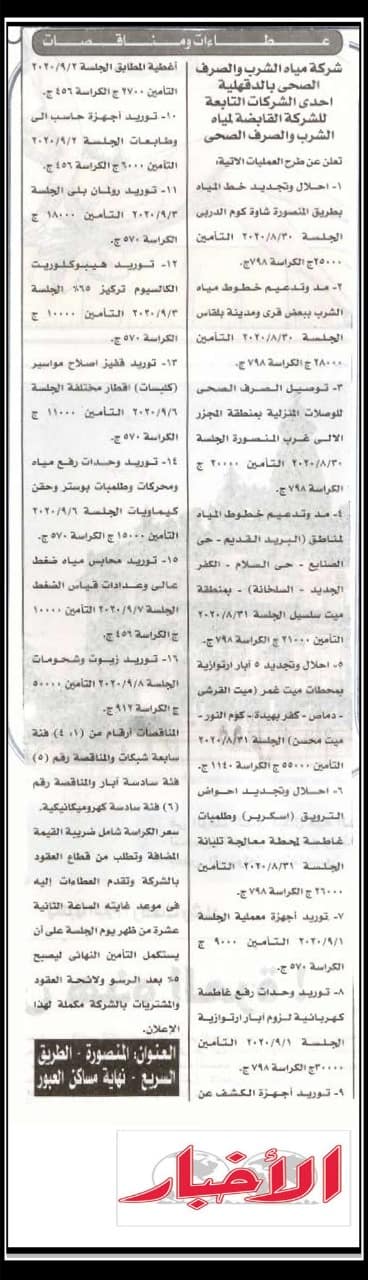 عطاءات ومناقصات
شركة مياه الشرب والصرف
الصحى بالدقهلية
احدى الشركات التابعة
للشركة القابضة لمياه
الشرب والصرف الصحى
تعلن عن طرح العمليات الاتية:
١- احلال وتجديد خط المياه
بطريق المنصورة شاوة كوم الدربى
الجلسة ٢٠٢٠/٨/٣٠ التأمين
٢٥٠٠٠ج الكراسة ٧٩٨ج.
٢- مد وتدعيم خطوط مياه
الشرب ببعض قرى ومدينة بلقاس
الجلسة ٢٠٢٠/٨/٣٠ التأمين
٢٨٠٠٠ ج الكراسة ٧٩٨ ج.
٣- توصيل الصرف الصحى
للوصلات المنزلية بمنطقة المجزر
الالى غرب المنصورة الجلسة
٢٠٢٠/٨/٣٠ التأمين ٢٠٠٠٠ ج
الكراسة ٧٩٨ ج.
٤- مد وتدعيم خطوط المياه
لمناطق (البريد القديم - حى
الصنايع - حى السلام - الكفر
الجديد - السلخانة) - بمنطقة
ميت سلسيل الجلسة ٢٠٢٠/٨/٣١
التأمين ٢١٠٠٠ ج الكراسة ٧٩٨ ج.
٥- احلال وتجديد ٥ أبار ارتوازية
بمحطات ميت غمر (ميت القرشى
- دماص - كفر بهيدة - كوم النور -
ميت محسن) الجلسة ٢٠٢٠/٨/٣١
التأمين ٥٥٠٠٠ ج الكراسة ١١٤٠ ج.
٦- احلال وتجديد احواض
الترويق (اسكربر) وطلمبات
غاطسة لمحطة معالجة تلبانة
الجلسة ٢٠٢٠/٨/٣١ التأمين
٢٦٠٠٠ ج الكراسة ٧٩٨ ج.
٧- توريد أجهزة معملية الجلسة
٢٠٢٠/٩/١ التأمين ٩٠٠٠ ج
الكراسة ٥٧٠ ج.
٨- توريد وحدات رفع غاطسة
كهربائية لزوم أبار ارتوازية
الجلسة ٢٠٢٠/٩/١ التأمين
٣٠٠٠٠ج الكراسة ٧٩٨ ج.
٩- توريد أجهزة الكشف عن
أغطية المطابق الجلسة ٢٠٢٠/٩/٢
التأمين ٢٧٠٠ ج الكراسة ٤٥٦ ج.
١٠- توريد أجهزة حاسب الى
وطابعات الجلسة ٢٠٢٠/٩/٢
التأمين ٦٠٠٠ ج الكراسة ٤٥٦ ج.
١١- توريد رولمان بلى الجلسة
٢٠٢٠/٩/٣ التأمين ١٨٠٠٠ ج
الكراسة ٥٧٠ ج.
١٢- توريد هيبوكلوريت
الكالسيوم تركيز ٦٥٪ الجلسة
٢٠٢٠/٩/٣ التأمين ١٠٠٠٠ ج
الكراسة ٥٧٠ ج.
١٣- توريد قفيز اصلاح مواسير
(كلبسات) اقطار مختلفة الجلسة
٢٠٢٠/٩/٦ التأمين ١١٠٠٠ ج
الكراسة ٥٧٠ ج.
١٤- توريد وحدات رفع مياه
ومحركات وطلمبات بوستر وحقن
كيماويات الجلسة ٢٠٢٠/٩/٦
التأمين ١٥٠٠٠ ج الكراسة ٥٧٠ ج.
١٥- توريد محابس مياه ضغط
عالى وعدادات قياس الضغط
الجلسة ٢٠٢٠/٩/٧ التأمين ١٠٠٠٠
ج الكراسة ٤٥٦ ج.
١٦- توريد زيوت وشحومات
الجلسة ٢٠٢٠/٩/٨ التأمين ٥٠٠٠٠
ج الكراسة ٩١٢ ج.
المناقصات أرقام من (١، ٤) فئة
سابعة شبكات والمناقصة رقم (٥)
فئة سادسة أبار والمناقصة رقم
(٦) فئة سادسة كهروميكانيكية.
سعر الكراسة شامل ضريبة القيمة
المضافة وتطلب من قطاع العقود
بالشركة وتقدم العطاءات إليه
فى موعد غايته الساعة الثانية
عشرة من ظهر يوم الجلسة على أن
يستكمل التأمين النهائى ليصبح
٥٪ بعد الرسو ولائحة العقود
والمشتريات بالشركة مكملة لهذا
الإعلان.
العنوان: المنصورة - الطريق
السريع - نهاية مساكن العبور
الأخبار